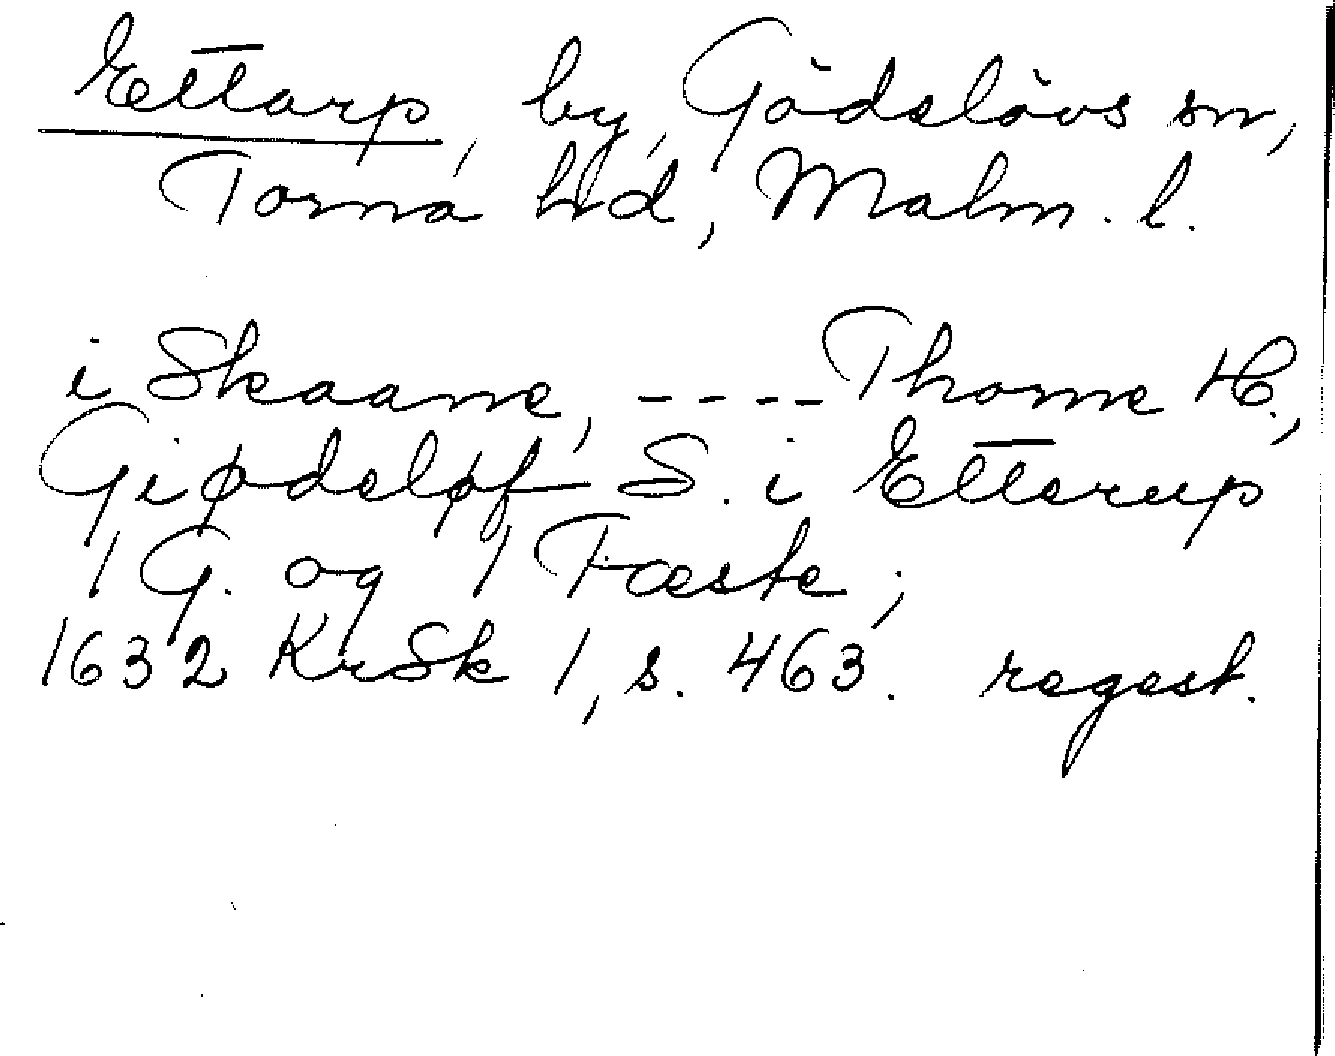 Ettarp, by, Gödelövs sn,
Torna hd, Malm. l.
i Skaane, ---- Thorne H.,
Giødeløf S. i Etterup
1 G. og 1 Fæste;
1632 KrSk 1, s. 463. regest.